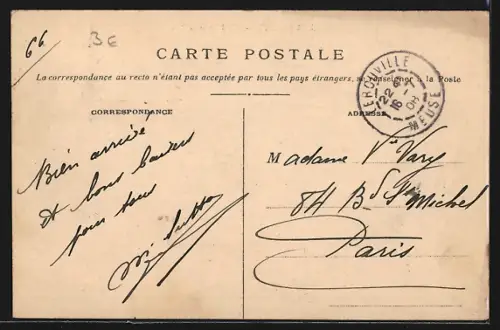 66
3E
CARTE POSTALE
La correspondance au recto n'étant pas acceptée par tous les pays étrangers, se renseigner à la Poste
LEROUVILLE
22
16-7
08
MEUSE
CORRESPONDANCE
ADRESSE
Bien arrivé
et bons baisers
pour tous
Madame Vve Vary
84 Bd St Michel
Paris